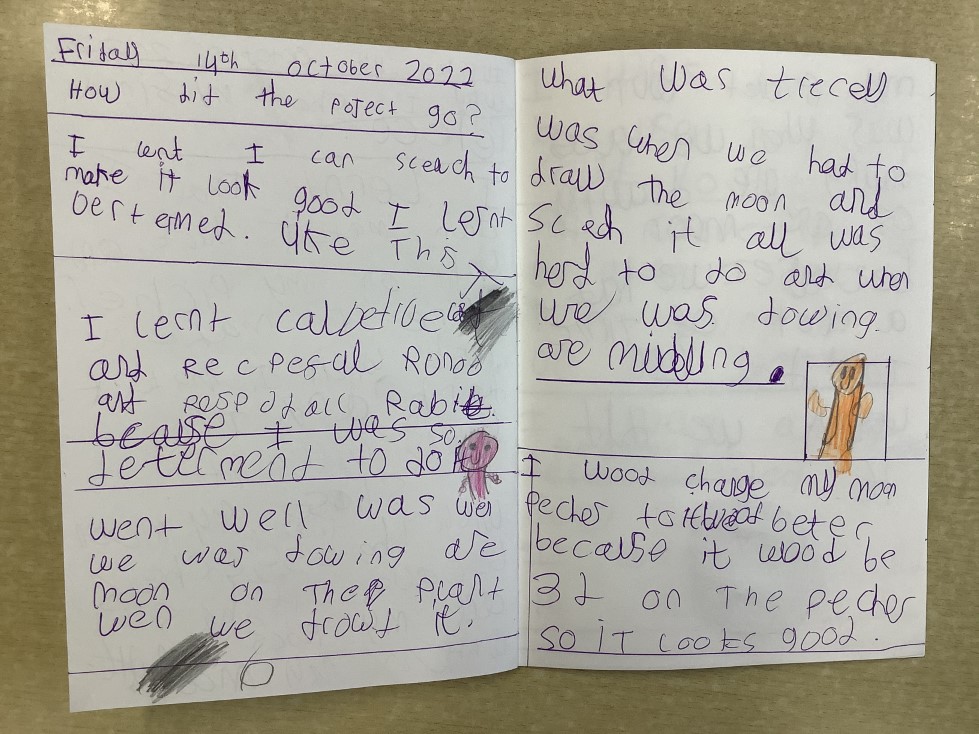 Friday 14th october 2022
How did the poject go?
I lernt I can sceach to
make it look good I lernt
Determed. like This
I lernt
and Rec pesal
and Rabit
because I was so
determent to do it
went well was wen
we was dowing are
moon on The picart
wen we drowt it.
what was treceey
was when we had to
draw the moon and
scech it all was
herd to do and when
we was dowing.
are middling.
I wood change my moon
pecher to beter
because it wood be
3d on The pecher
so iT Looks good.